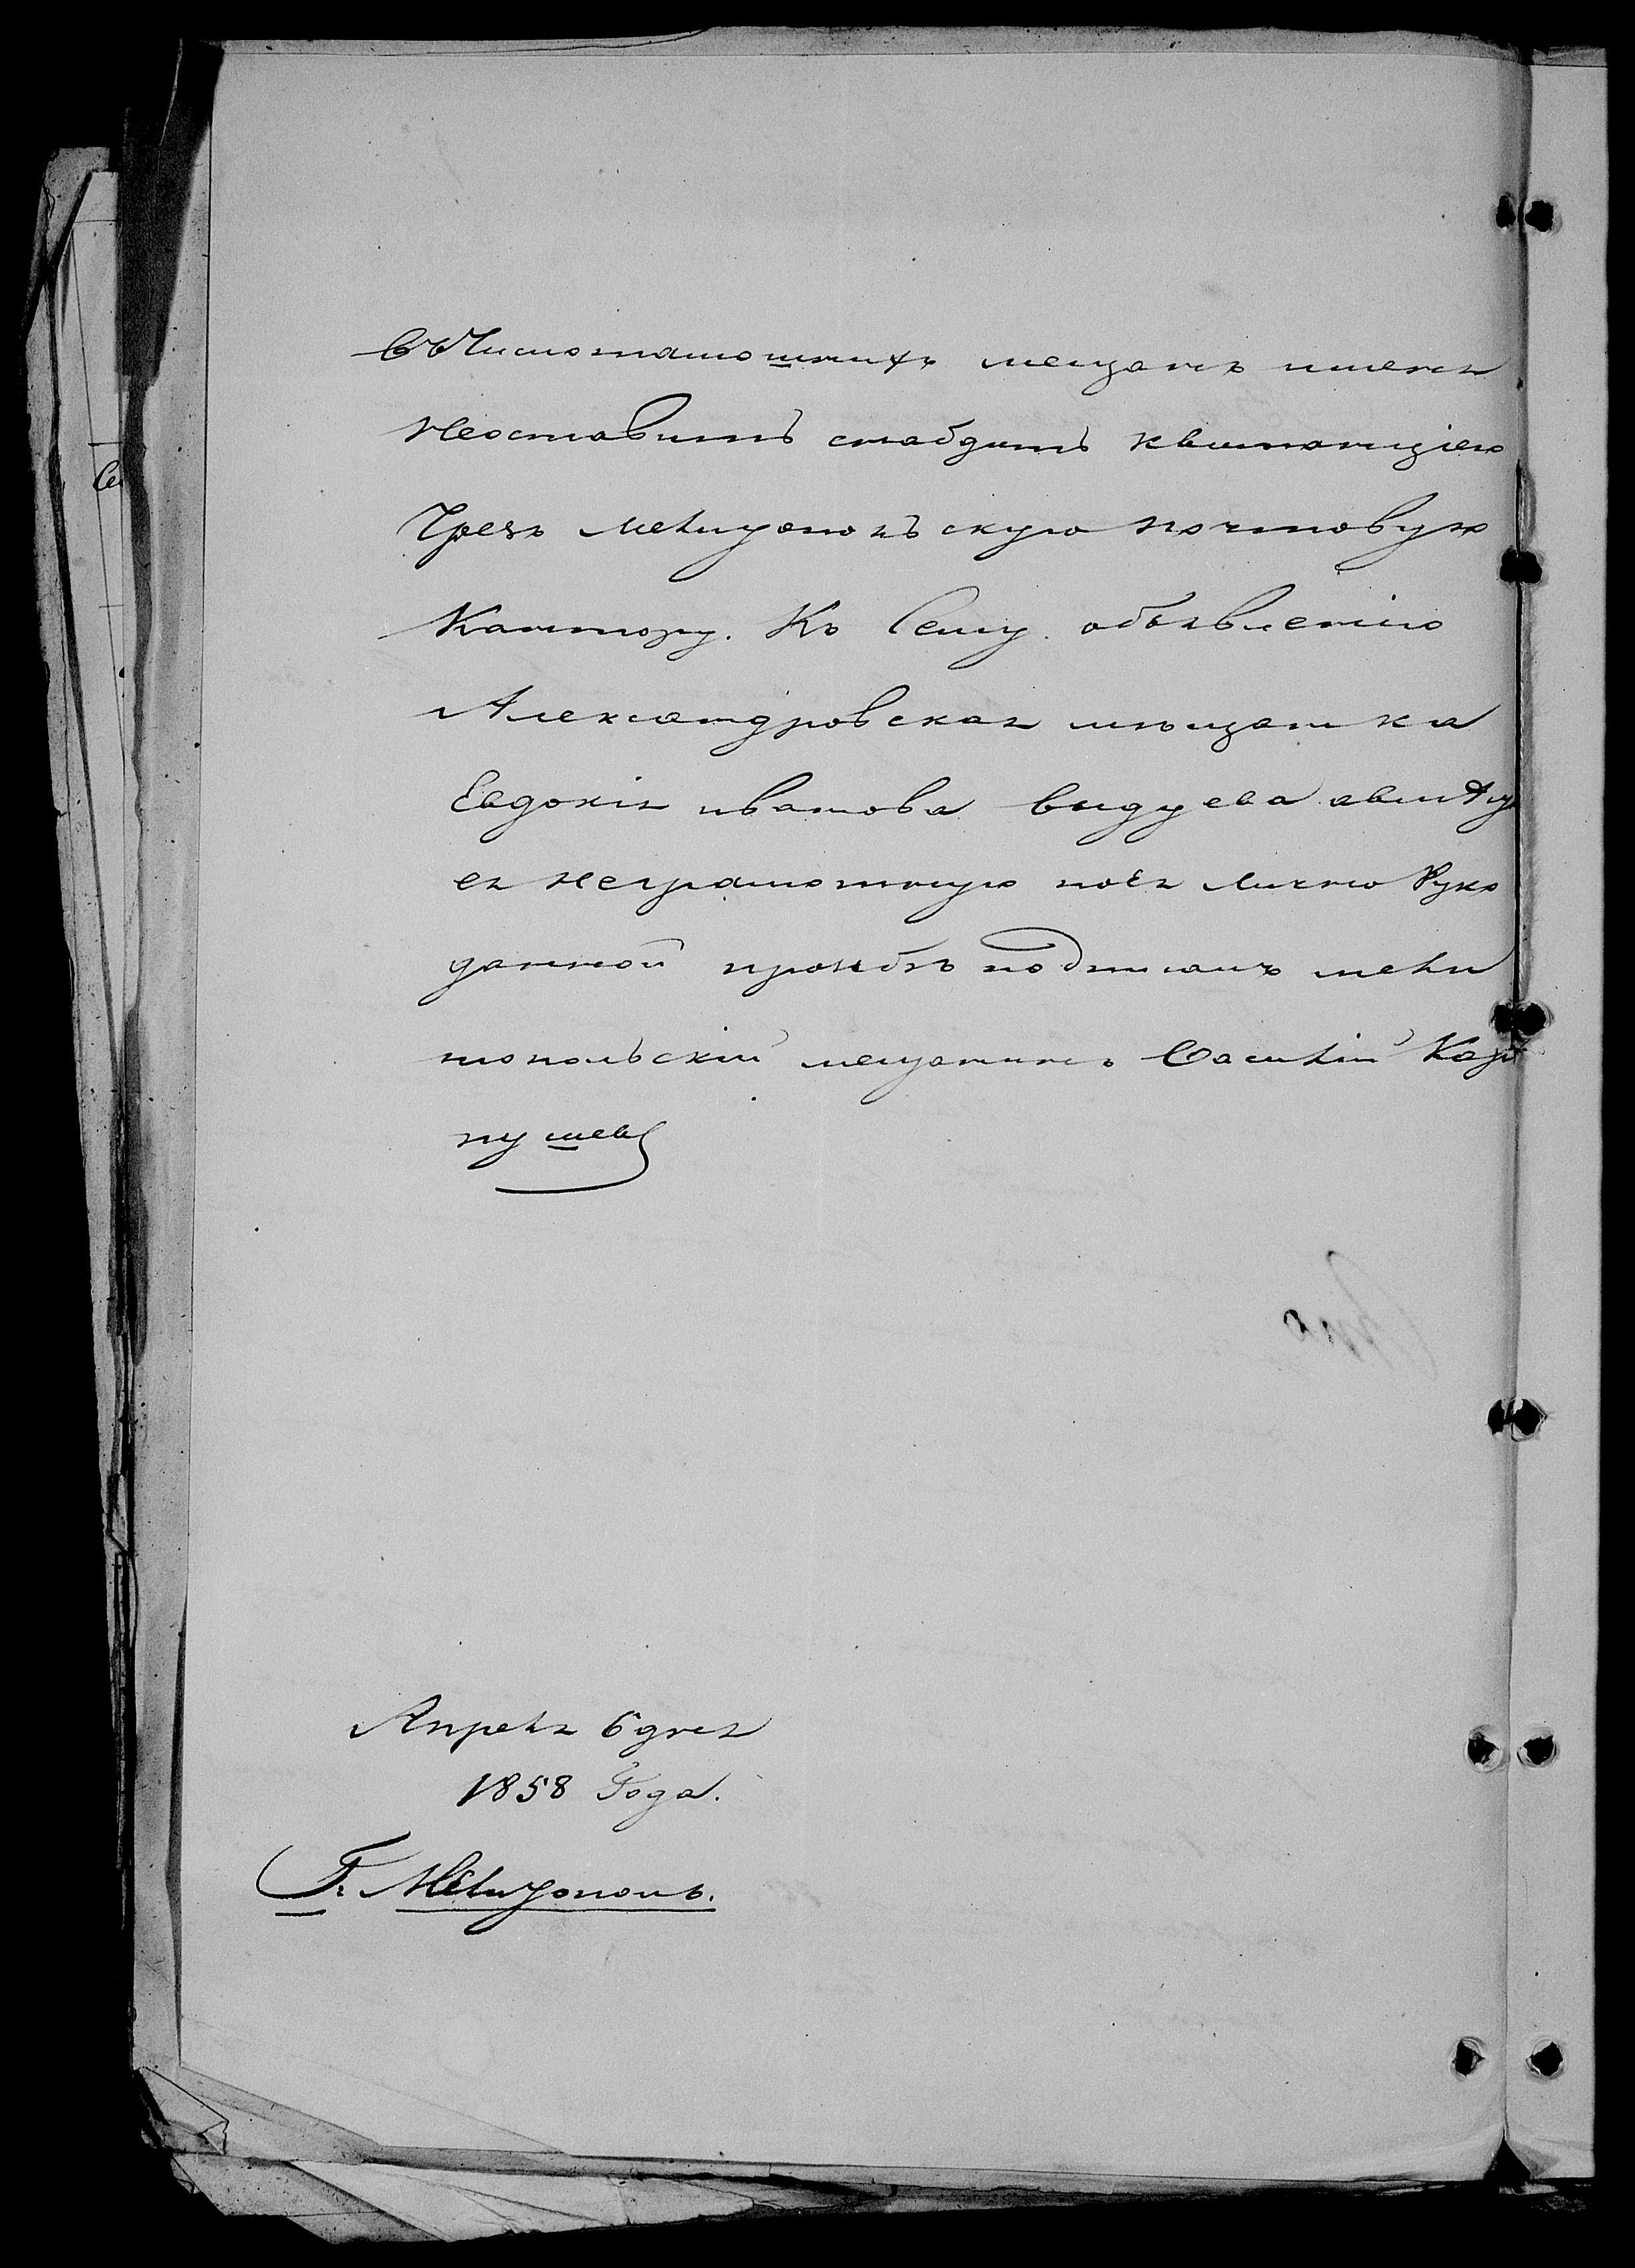 въ Число тамошнихъ мещанъ именя
неоставить снабдить квитанціею
Чрезъ мелитопольскую почтовую
Кантору. Къ Сему объявленію
Александровская мѣщанка
Евдокія иванова выдуева авмѣсто
ея неграмотную поея лично Руко
данной прозбѣ подписалъ мели
топольскій мещанинъ Василій Кар
пушевъ
Апреля 6 дня
1858 Года.
Г. Мелитополь.